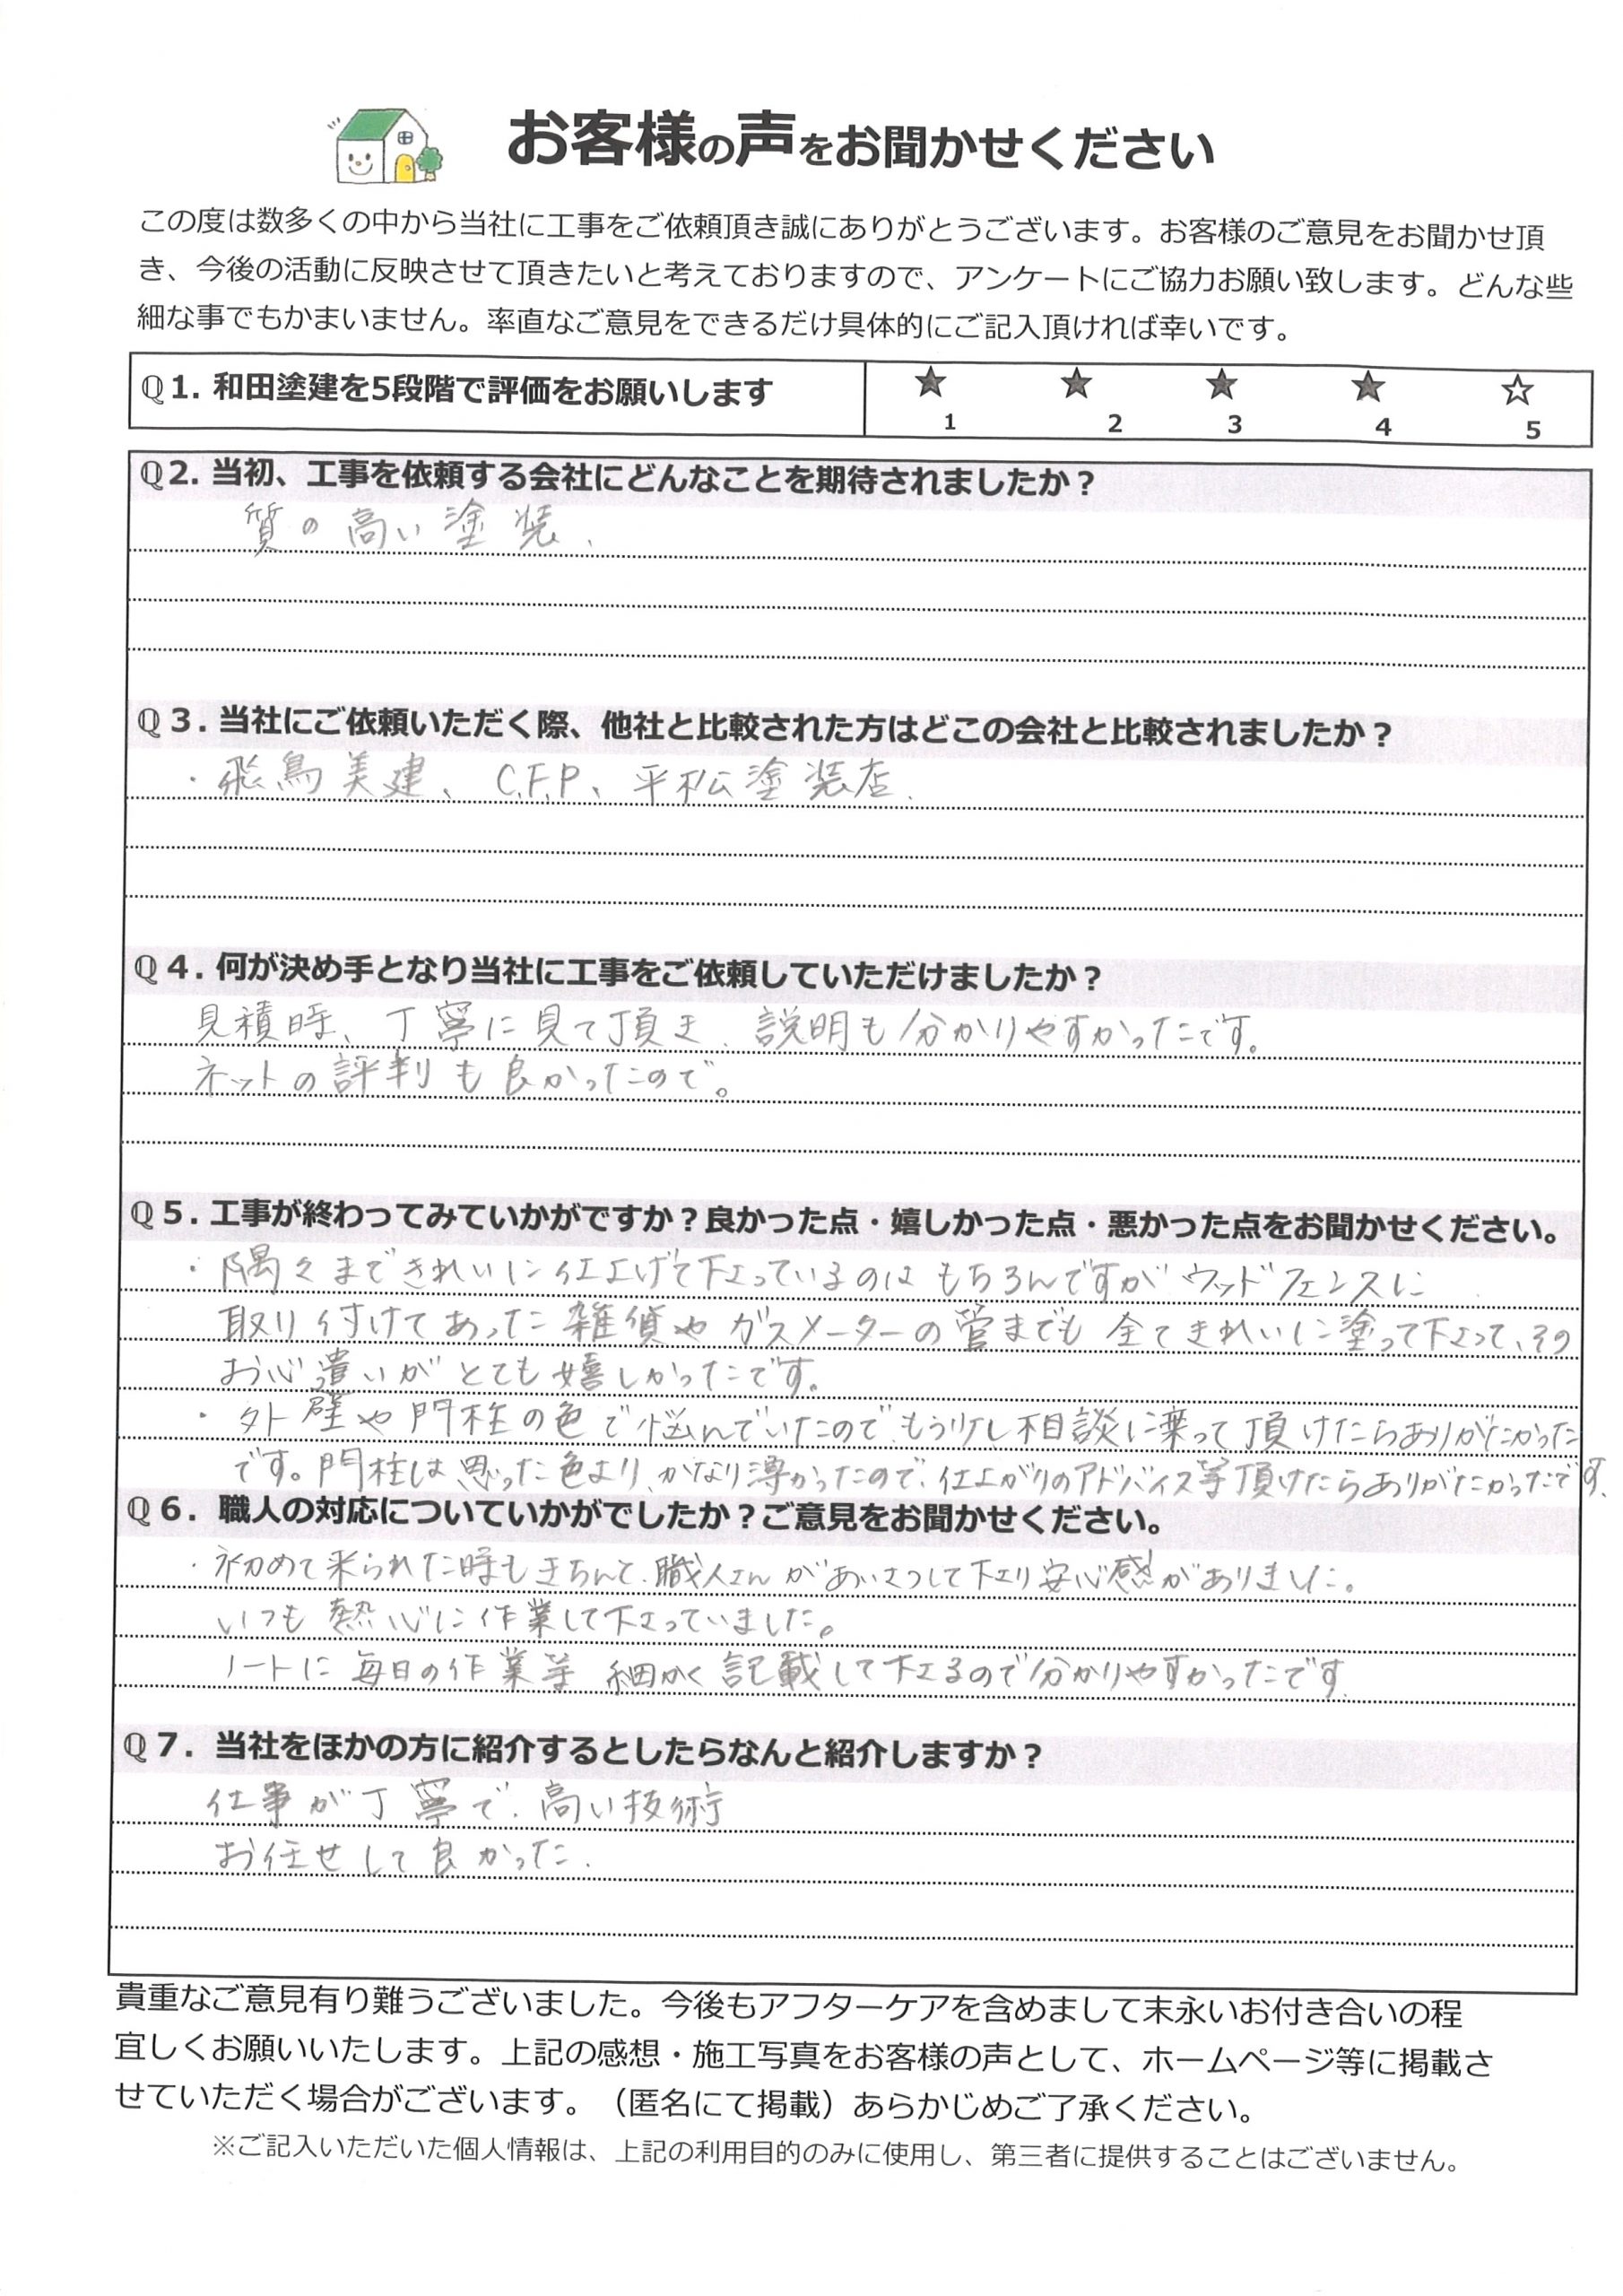 お客様の声をお聞かせください
この度は数多くの中から当社に工事をご依頼頂き誠にありがとうございます。お客様のご意見をお聞かせ頂
き、今後の活動に反映させて頂きたいと考えておりますので、アンケートにご協力お願い致します。どんな些
細な事でもかまいません。率直なご意見をできるだけ具体的にご記入頂ければ幸いです。
Q1. 和田塗建を5段階で評価をお願いします ★ ★ ★ ★ ☆
1 2 3 4 5
Q2. 当初、工事を依頼する会社にどんなことを期待されましたか？
質の高い塗装.
Q３. 当社にご依頼いただく際、他社と比較された方はどこの会社と比較されましたか？
・飛鳥美建、C.F.P、平松塗装店.
Q４. 何が決め手となり当社に工事をご依頼していただけましたか？
見積時、丁寧に見て頂き、説明も分かりやすかったです。
ネットの評判も良かったので。
Q５. 工事が終わってみていかがですか？良かった点・嬉しかった点・悪かった点をお聞かせください。
・隅々まできれいに仕上げて下さっているのはもちろんですがウッドフェンスに
取り付けてあった雑貨やガスメーターの管までも全てきれいに塗って下さって、その
お心遣いがとても嬉しかったです。
・外壁や門柱の色で悩んでいたので、もう少し相談に乗って頂けたらありがたかった
です。門柱は思った色より、かなり薄かったので、仕上がりのアドバイス等頂けたらありがたかったです.
Q６. 職人の対応についていかがでしたか？ご意見をお聞かせください。
・初めて来られた時もきちんと、職人さんがあいさつして下さり安心感がありました。
いつも熱心に作業して下さっていました。
ノートに毎日の作業等細かく記載して下さるので分かりやすかったです.
Q７. 当社をほかの方に紹介するとしたらなんと紹介しますか？
仕事が丁寧で、高い技術
お任せして良かった.
貴重なご意見有り難うございました。今後もアフターケアを含めまして末永いお付き合いの程
宜しくお願いいたします。上記の感想・施工写真をお客様の声として、ホームページ等に掲載さ
せていただく場合がございます。（匿名にて掲載）あらかじめご了承ください。
※ご記入いただいた個人情報は、上記の利用目的のみに使用し、第三者に提供することはございません。